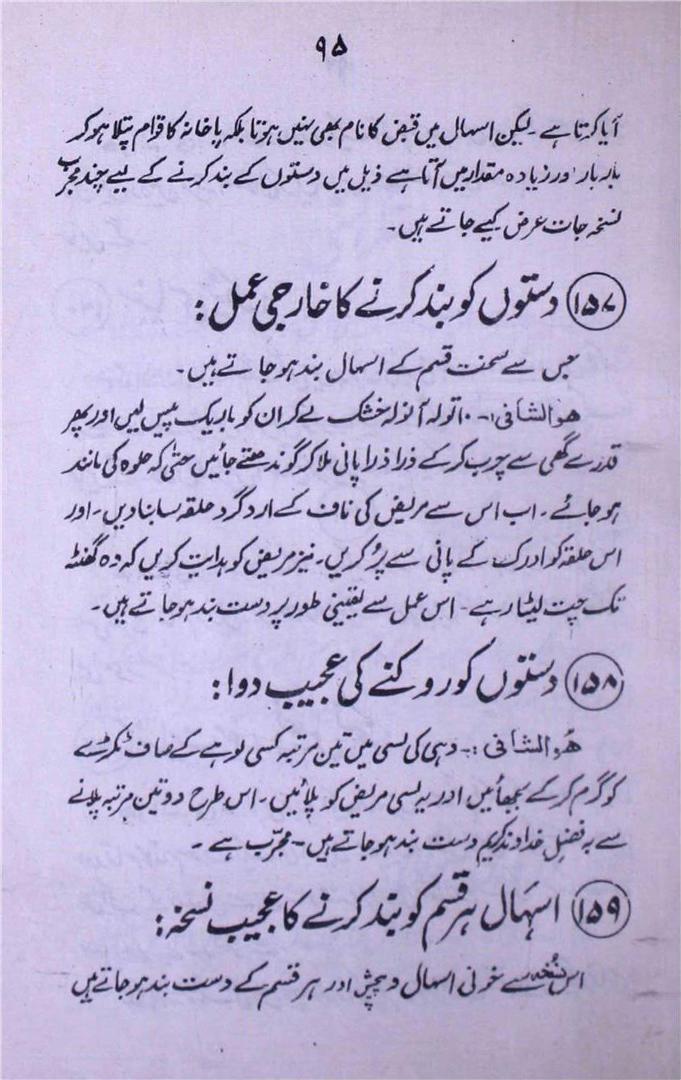 ۹۵
آیا کرتا ہے ۔ لیکن اسہال میں قبض کا نام بھی نہیں ہوتا بلکہ پاخانہ کا قوام پتلا ہو کر
بار بار اور زیادہ مقدار میں آتا ہے ذیل میں دستوں کے بند کرنے کے لیے چند مجرّب
نسخہ جات عرض کیے جاتے ہیں ۔
۱۵۷ دستوں کو بند کرنے کا خارجی عمل :
جس سے سخت قسم کے اسہال بند ہو جاتے ہیں ۔
ھوالشافی :۔ ۱۰ تولہ آنولہ خشک لے کر ان کو باریک پیس لیں اور پھر
قدرے گھی سے چرب کر کے ذرا ذرا پانی ملا کر گوندھتے جائیں حتیٰ کہ حلوہ کی مانند
ہو جائے ۔ اب اس سے مریض کی ناف کے ارد گرد حلقہ سا بنا دیں ۔ اور
اس حلقہ کو ادرک کے پانی سے پُر کریں ۔ نیز مریض کو ہدایت کریں کہ دہ گھنٹہ
تک چت لیٹا رہے ۔ اس عمل سے یقینی طور پر دست بند ہو جاتے ہیں ۔
۱۵۸ دستوں کو روکنے کی عجیب دوا :
ھُوالشافی :۔ دہی کی لسی میں تین مرتبہ کسی لوہے کے صاف ٹکڑے
کو گرم کر کے بجھائیں اور یہ لسی مریض کو پلائیں ۔ اس طرح دو تین مرتبہ پلانے
سے بہ فضلِ خداوند کریم دست بند ہو جاتے ہیں ۔ مجرّب ہے ۔
۱۵۹ اسہال ہر قسم کو بند کرنے کا عجیب نسخہ :
اس نسخہ سے خونی اسہال و پیچش اور ہر قسم کے دست بند ہو جاتے ہیں